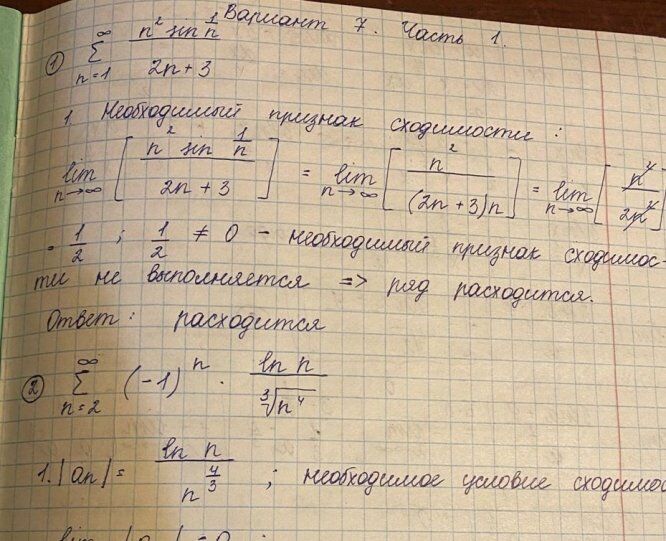 Вариант 7. Часть 1.
① ∑_{n=1}^{∞} (n² sin 1/n)/(2n+3)
1. Необходимый признак сходимости:
lim_{n→∞} [(n² sin 1/n)/(2n+3)] = lim_{n→∞} [n²/((2n+3)n)] = lim_{n→∞} [n²/2n²]
= 1/2 ; 1/2 ≠ 0 - необходимый признак сходимос-
ти не выполняется => ряд расходится.
Ответ: расходится
② ∑_{n=2}^{∞} (-1)^n · ln n/∛(n⁴)
1. |an| = ln n/n^{4/3} ; необходимое условие сходимос